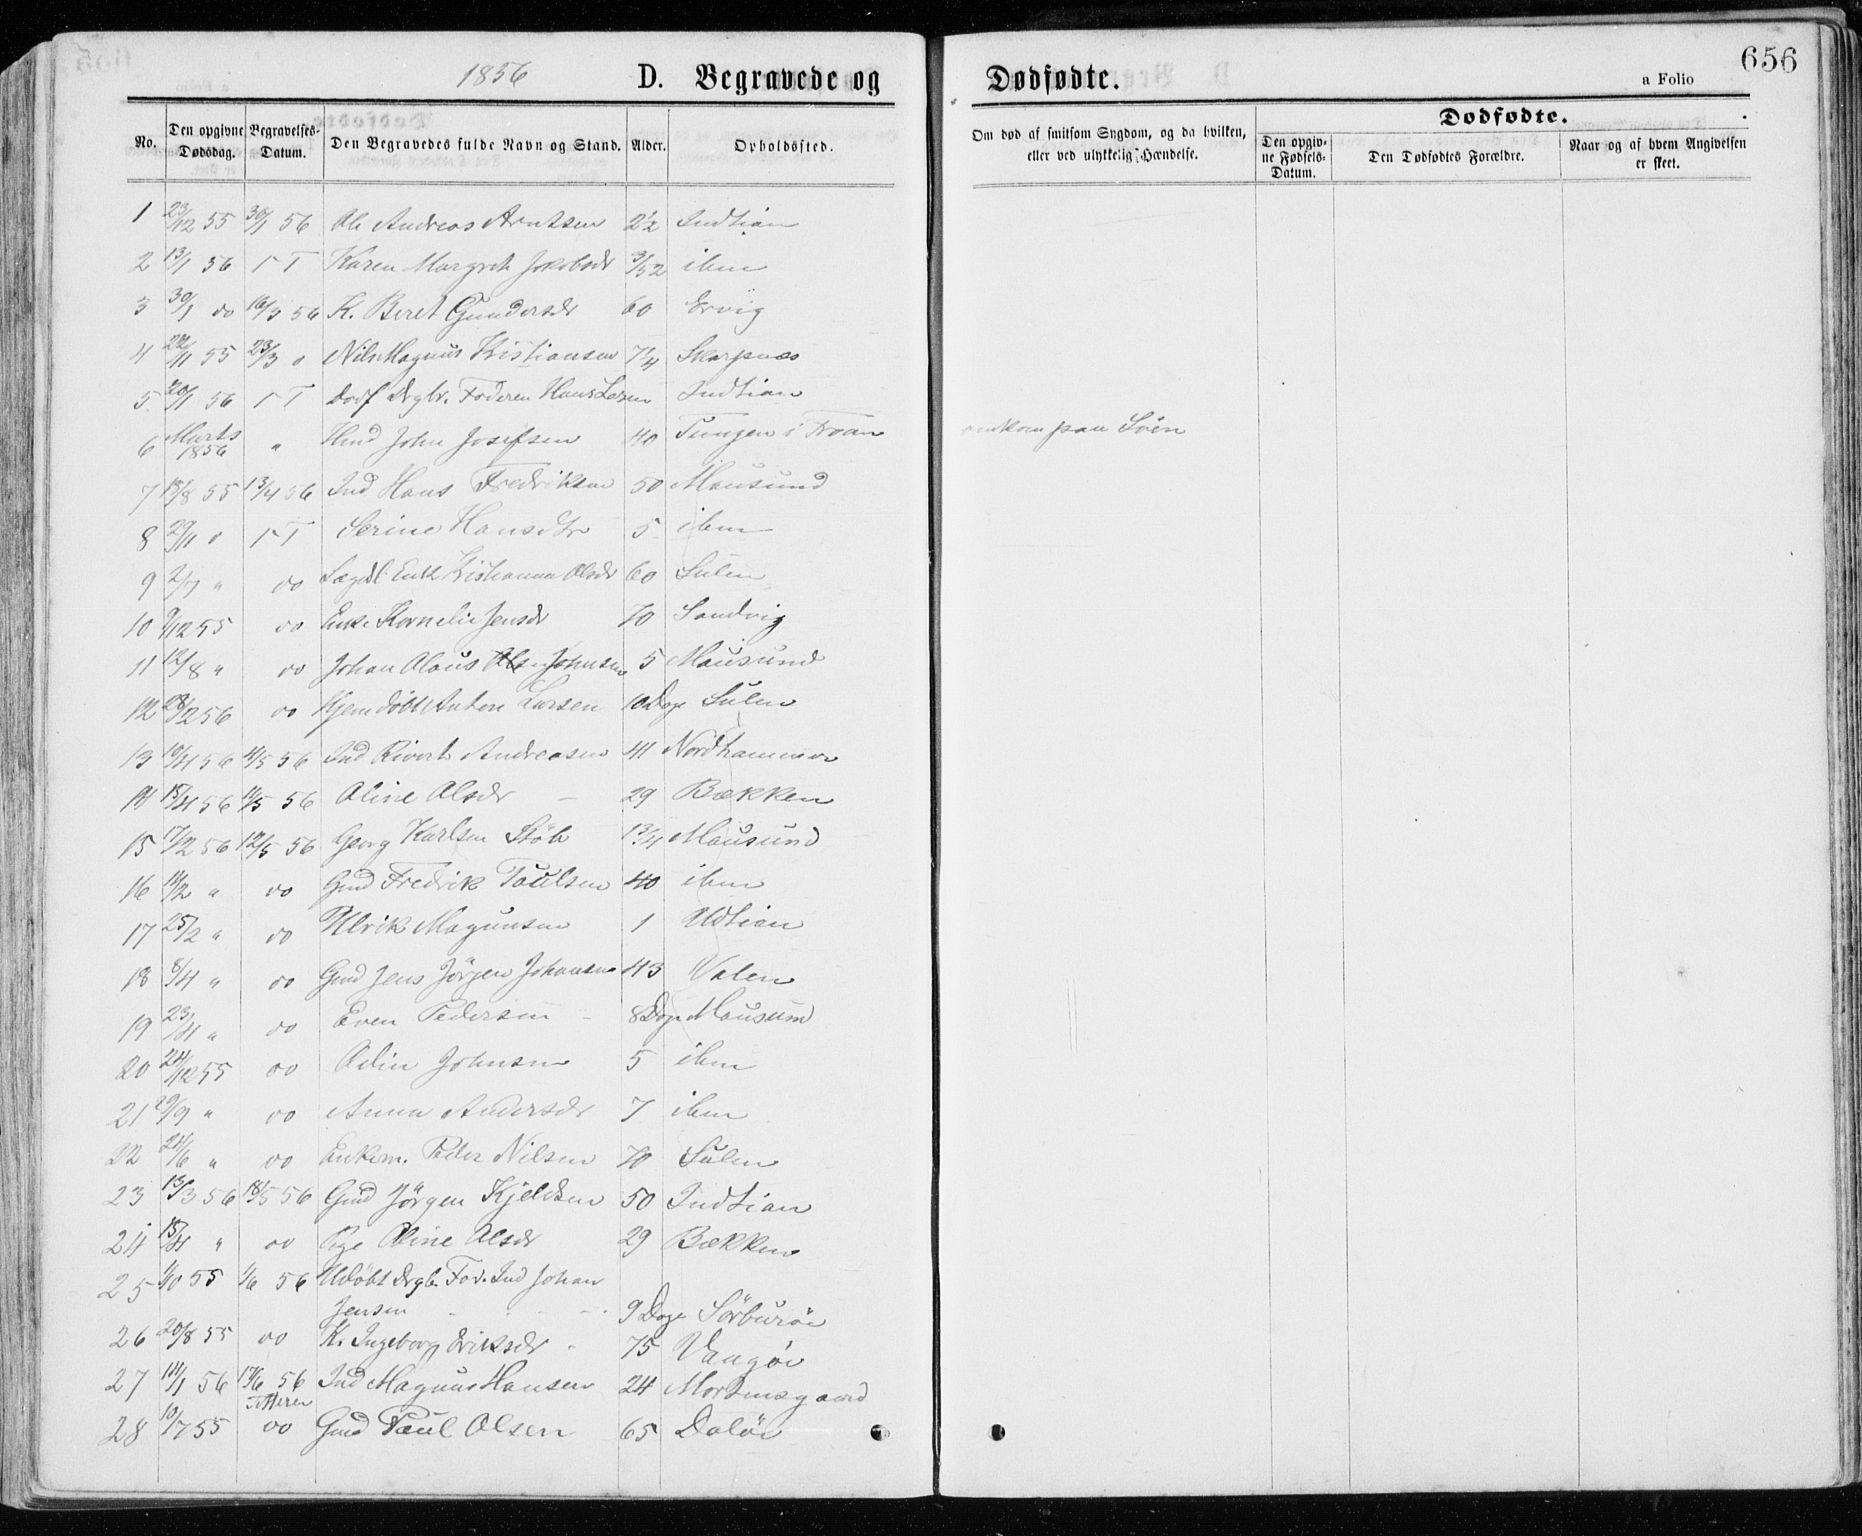 1856 D. Begravede og Dødfødte. a Folio 656
No. Den opgivne Dødsdag. Begravelses-Datum. Den Begravedes fulde Navn og Stand. Alder. Opholdssted. Om død af smitsom Sygdom, og da hvilken, eller ved ulykkelig Hændelse. Dødfødte. Den opgivne Fødsels-Datum. Den Dødfødtes Forældre. Naar og af hvem Angivelsen er skeet.
1 23/12 55 30/1 56 Ole Andreas Arntsen 2½ Indtian
2 13/1 56 Karen Margreth Jakobsdr 3/52 ibm
3 30/1 do 16/3 56 K. Beret Gundersdr 60 Ervig
4 22/11 55 23/3 Nils Magnus Kristiansen 7¼ Skarpnæs
5 20/1 56 Hans Larsen Indtian
6 Marts 1856 " John Josefsen 40 Tungen i Froan omkom paa Søen
7 15/8 55 13/4 56 Ind Hans Fredriksen 50 Mausund
8 29/11 Serine Hansdtr 5 ibm
9 2/7 " do Enk Kristianna Olsdr 60 Sulen
10 9/12 55 do Enke Kornelie Jensdr 70 Sandvig
11 12/8 " do Johan Olaus Johnsen 5 Mausund
12 28/2 56 do Hjemdøbt Anton Larsen 10 Dage Sulen
13 10/4 56 11/5 56 Ind Rivert Andreasen 41 Nordhammer
14 15/4 56 11/5 56 Oline Olsdr - 29 Bækken
15 17/2 56 12/5 56 Georg Karlsen Støb 1¾ Mausund
16 14/2 " do Gmd Fredrik Paulsen 40 ibm
17 25/2 " do Ulrik Magnusen 1 Udtian
18 8/4 " do Gmd Jens Jørgen Johansen 43 Valen
19 23/4 " do Even Pedersen - 8 Dage Mausund
20 24/12 55 do Odin Johnsen 5 ibm
21 29/9 " do Anna Andersdr 7 ibm
22 24/6 " do Enkem. Peder Nilsen 70 Sulen
23 13/3 56 18/5 56 Gmd Jørgen Kjeldsen 50 Indtian
24 15/4 " do Pige Oline Olsdr 29 Bækken
25 1/10 55 1/6 56 Udøbt Drgb. For. Ind Johan
Jensen 9 Dage Sørburøi
26 20/8 55 do K. Ingeborg Eriksdr 75 Vangøi
27 14/1 56 15/6 56 Ind Magnus Hansen 24 Mortensgaard
Titteren
28 10/7 55 do Gmd Paul Olsen 65 Daløi